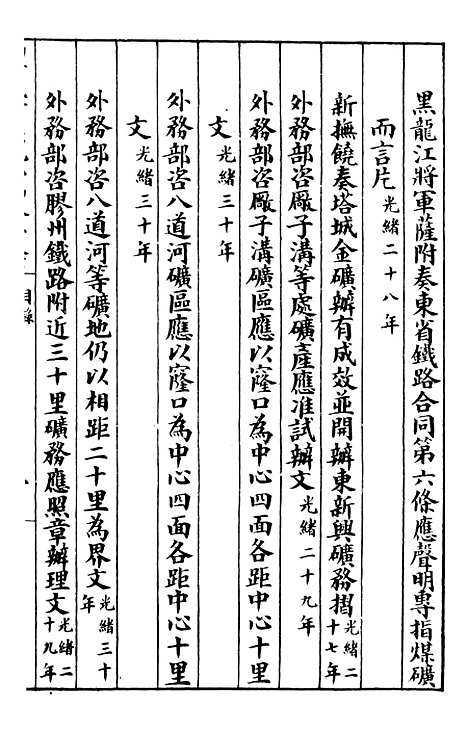 黑龍江將軍薩附奏東省鐵路合同第六條應聲明專指煤礦
而言片光緒二十八年
新撫饒奏塔城金礦辦有成效並開辦東新興礦務摺光緒二十七年
外務部咨廠子溝等處礦產應准試辦文光緒二十九年
外務部咨廠子溝礦區應以窿口為中心四面各距中心十里
文光緒三十年
外務部咨八道河礦區應以窿口為中心四面各距中心十里
文光緒三十年
外務部咨八道河等礦地仍以相距二十里為界文光緒三十年
外務部咨膠州鐵路附近三十里礦務應照章辦理文光緒二十九年
目錄